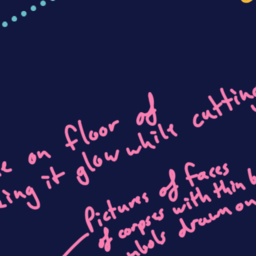 on floor of
it glow while cutting
Pictures of faces
of corpses with thin
drawn on